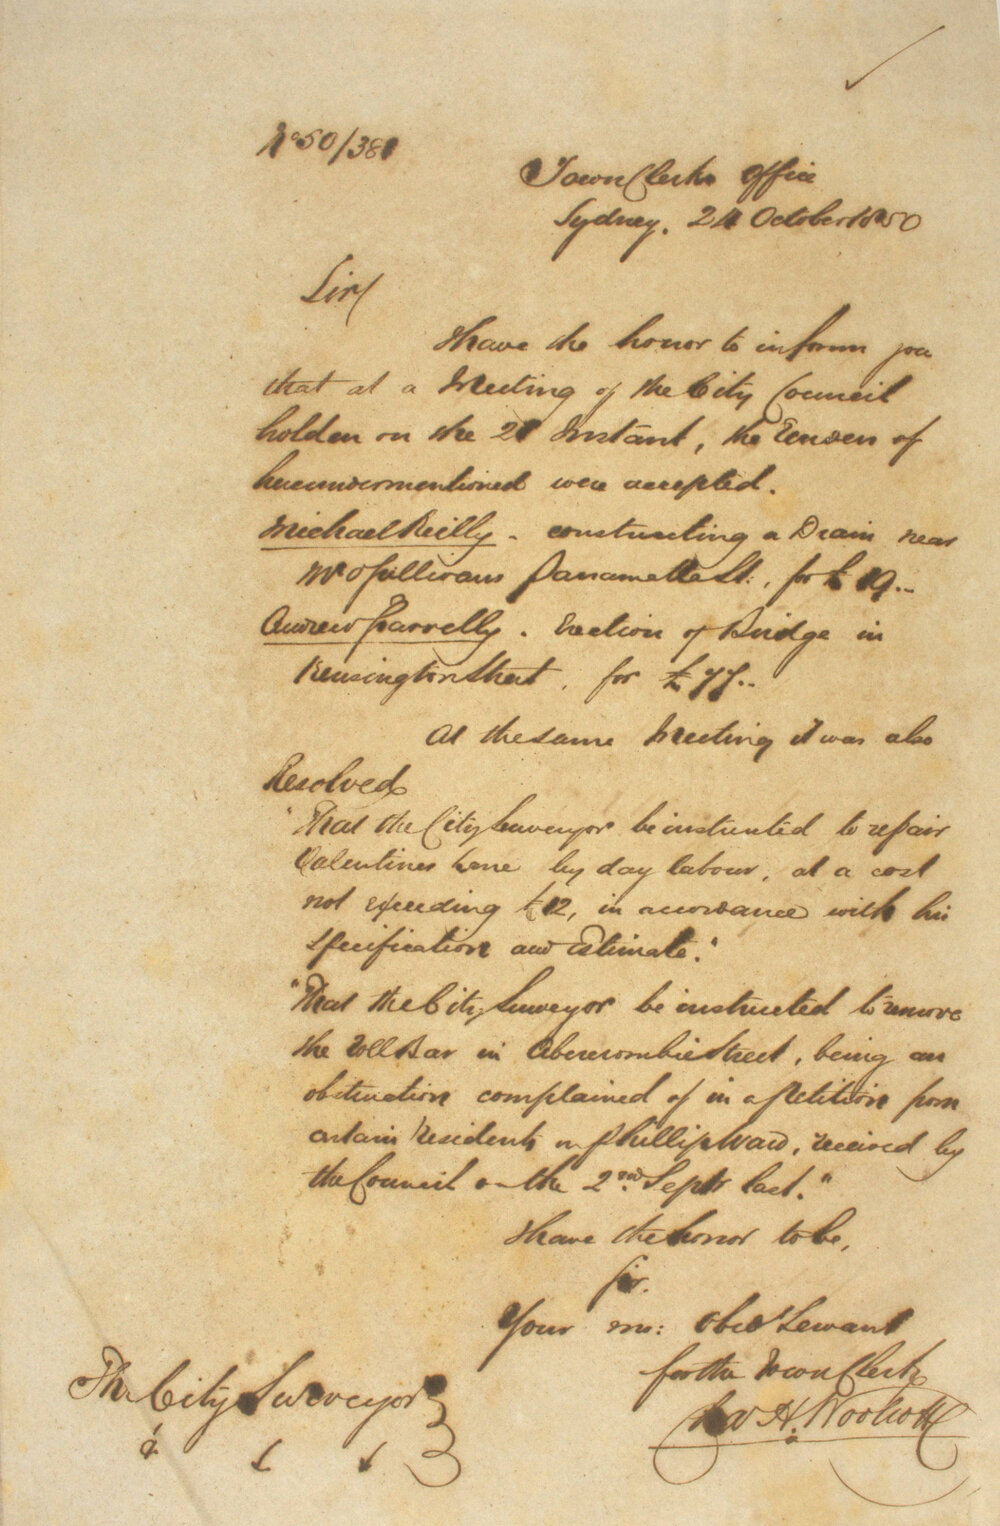 No 50/381
Town Clerks Office
Sydney. 24 October 1850
Sir/
I have the honor to inform you
that at a Meeting of the City Council
holden on the 21 Instant, the Tenders of
hereundermentioned were accepted.
Michael Reilly - constructing a Drain near
Mr O'Sullivans Parramatta St:, for £19..
Andrew Farrelly. Erection of Bridge in
Kensington Street, for £77..
At the same Meeting it was also
Resolved
"That the City Surveyor be instructed to repair
Valentines Lane by day labour, at a cost
not exceeding £12, in accordance with his
specification and Estimate."
"That the City Surveyor be instructed to remove
the Toll Bar in Abercrombie Street, being an
obstruction complained of in a Petition from
certain Residents in Phillip Ward, received by
the Council on the 2nd Septr last."
I have the honor to be,
Sir.
Your mo: obed Servant
for the Town Clerk
H. Woolcott
The City Surveyor
& & &